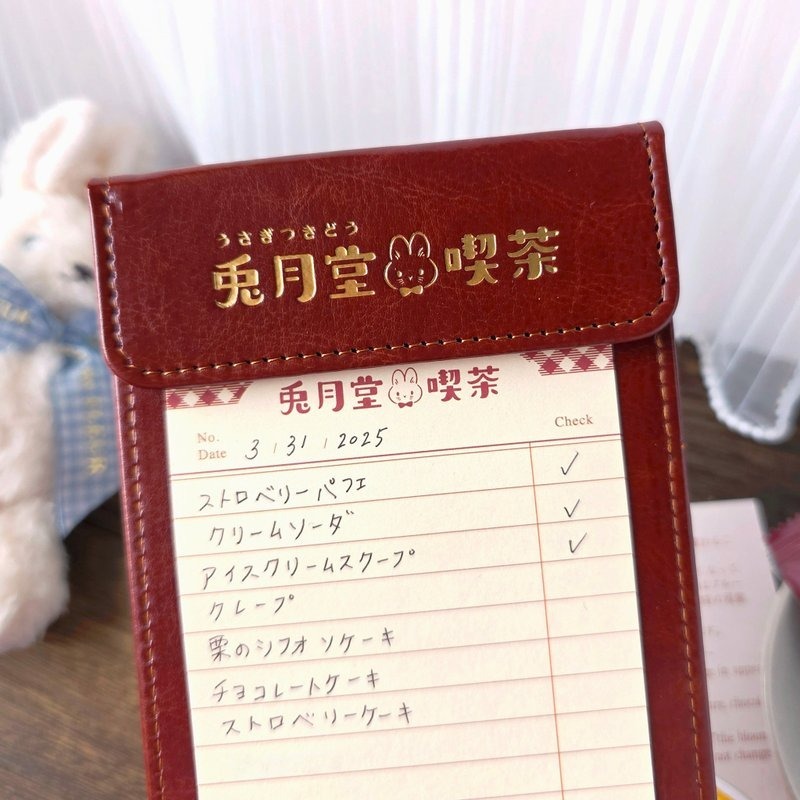 うさぎつきどう
兎月堂 喫茶
兎月堂 喫茶
No.
Date 3 / 31 / 2025
Check
ストロベリーパフェ ✓
クリームソーダ ✓
アイスクリームスクープ ✓
クレープ
栗のシフォンケーキ
チョコレートケーキ
ストロベリーケーキ